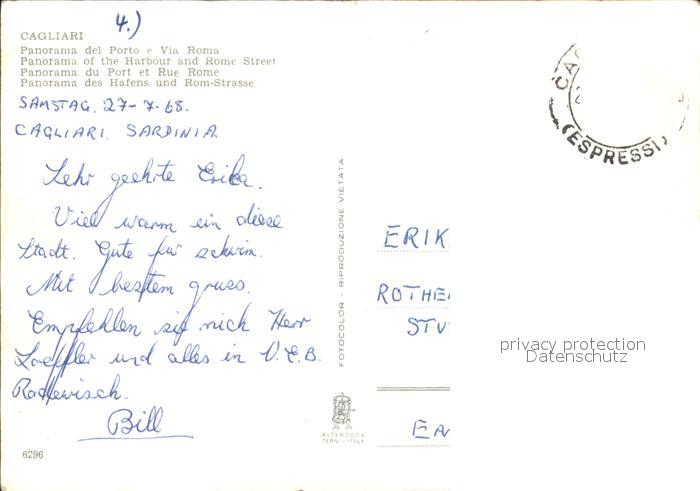 4.)
CAGLIARI
Panorama del Porto e Via Roma
Panorama of the Harbour and Rome Street
Panorama du Port et Rue Rome
Panorama des Hafens und Rom-Strasse
SAMSTAG. 27-7.68.
CAGLIARI. SARDINIA
Sehr geehrte Erika.
Viel warm ein diese
Stadt. Gute für schwim.
Mit bestem gruss.
Empfehlen sie mich Herr
Loeffler und alles in V.E.B.
Radewisch.
Bill
6296
FOTOCOLOR - RIPRODUZIONE VIETATA
ALTEROCCA
TERNI - ITALY
CAG
(ESPRESSI)
ERIK
ROTHE
STU
privacy protection
Datenschutz